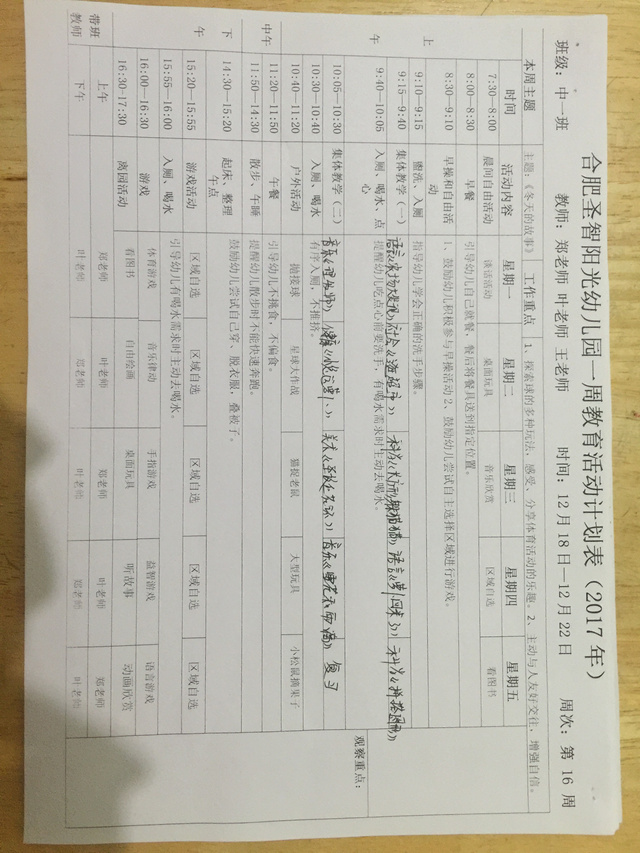 合肥圣智阳光幼儿园一周教育活动计划表（2017 年）
班级：中一班 教师：郑老师 叶老师 王老师 时间：12 月 18 日—12 月 22 日 周次：第 16 周
本周主题 主题：《冬天的故事》 工作重点 1、探索球的多种玩法，感受、分享体育活动的乐趣。2、主动与人友好交往，增强自信。
时间 活动内容 星期一 星期二 星期三 星期四 星期五
上午
7:30—8:00 晨间自由活动 谈话活动 桌面玩具 音乐欣赏 区域自选 看图书
8:00—8:30 早餐 引导幼儿自己就餐，餐后将餐具送到指定位置。
8:30—9:10 早操和自由活动 1、鼓励幼儿积极参与早操活动 2、鼓励幼儿尝试自主选择区域进行游戏。
9:10—9:15 盥洗、入厕 指导幼儿学会正确的洗手步骤。
9:15—9:40 集体教学（一） 语言 社会 科学 语言 科学
9:40—10:05 入厕、喝水、点心 提醒幼儿吃点心前要洗手，有喝水需求时主动去喝水。
观察重点：
10:05—10:30 集体教学（二） 音乐 美术 音乐 复习
10:30—10:40 入厕、喝水 有序入厕，不推挤。
10:40—11:20 户外活动 抛接球 星球大作战 猫捉老鼠 大型玩具 小松鼠摘果子
中午
11:20—11:50 午餐 引导幼儿不挑食，不偏食。
11:50—14:30 散步、午睡 提醒幼儿散步时不能快速奔跑。
下午
14:30—15:20 起床、整理午点 鼓励幼儿尝试自己穿、脱衣服，叠被子。
15:20—15:55 游戏活动 区域自选 区域自选 区域自选 区域自选 区域自选
15:55—16:00 入厕、喝水 引导幼儿有喝水需求时主动去喝水。
16:00—16:30 游戏 体育游戏 音乐律动 手指游戏 益智游戏 语言游戏
16:30—17:30 离园活动 看图书 自由绘画 桌面玩具 听故事 动画欣赏
带班教师 上午 郑老师 叶老师 郑老师 叶老师 郑老师
下午 叶老师 郑老师 叶老师 郑老师 叶老师